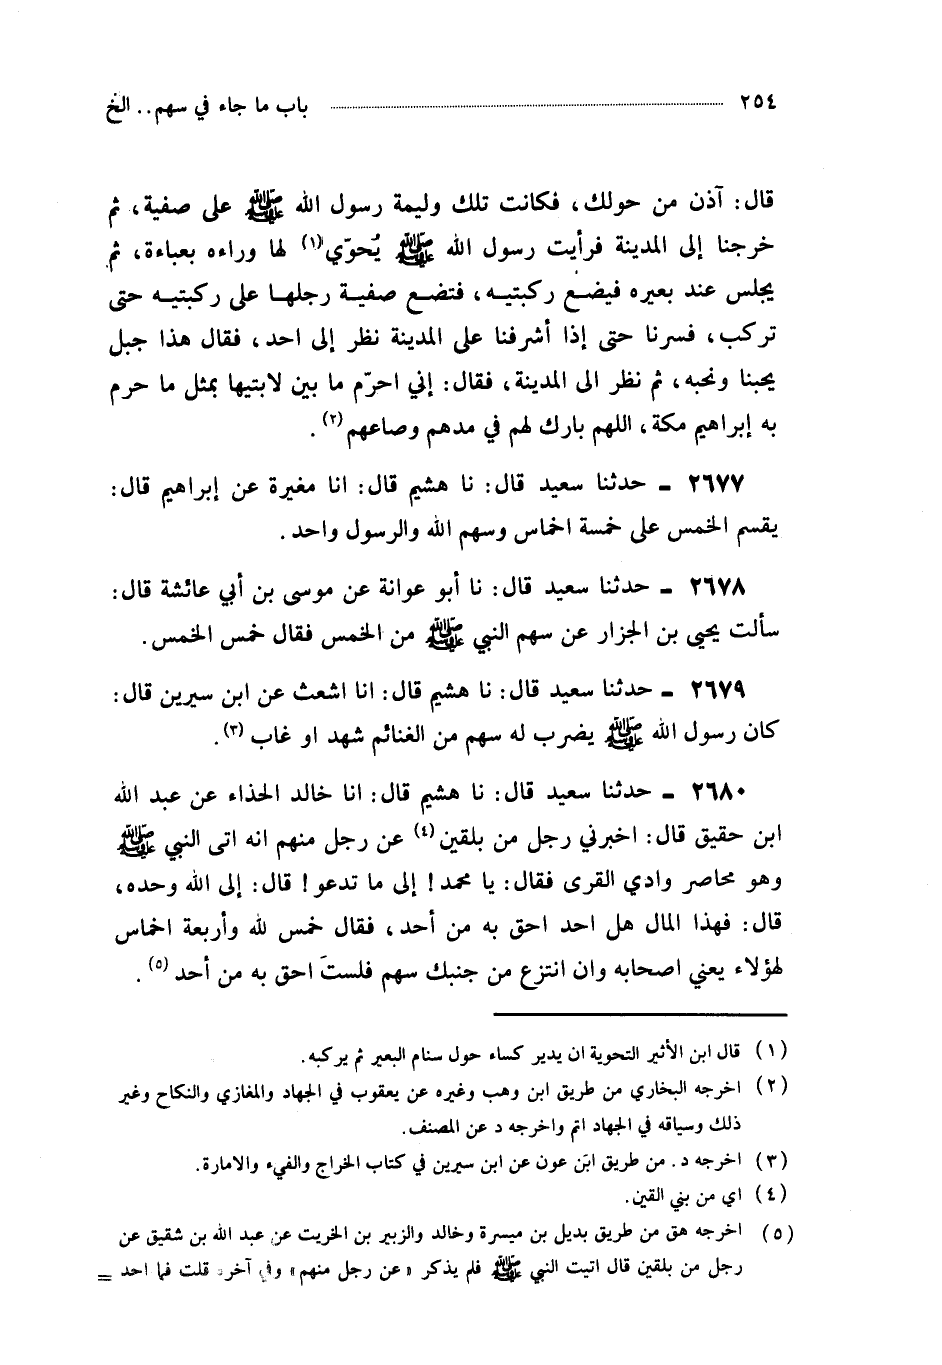 ٢٥٤ باب ما جاء في سهم.. الخ
قال: آذن من حولك، فكانت تلك وليمة رسول الله ﷺ على صفية، ثم
خرجنا إلى المدينة فرأيت رسول الله ﷺ يُحوّي(١) لها وراءه بعباءة، ثم
يجلس عند بعيره فيضع ركبتيه، فتضع صفية رجلها على ركبتيه حتى
تركب، فسرنا حتى إذا أشرفنا على المدينة نظر إلى احد، فقال هذا جبل
يحبنا ونحبه، ثم نظر الى المدينة، فقال: إني احرّم ما بين لابتيها بمثل ما حرم
به إبراهيم مكة، اللهم بارك لهم في مدهم وصاعهم(٢).
٢٦٧٧ ـ حدثنا سعيد قال: نا هشيم قال: انا مغيرة عن إبراهيم قال:
يقسم الخمس على خمسة اخماس وسهم الله والرسول واحد.
٢٦٧٨ ـ حدثنا سعيد قال: نا أبو عوانة عن موسى بن أبي عائشة قال:
سألت يحيى بن الجزار عن سهم النبي ﷺ من الخمس فقال خمس الخمس.
٢٦٧٩ ـ حدثنا سعيد قال: نا هشيم قال: انا اشعث عن ابن سيرين قال:
كان رسول الله ﷺ يضرب له سهم من الغنائم شهد او غاب(٣).
٢٦٨٠ ـ حدثنا سعيد قال: نا هشيم قال: انا خالد الحذاء عن عبد الله
ابن حقيق قال: اخبرني رجل من بلقين(٤) عن رجل منهم انه اتى النبي ﷺ
وهو محاصر وادي القرى فقال: يا محمد! إلى ما تدعو! قال: إلى الله وحده،
قال: فهذا المال هل احد احق به من أحد، فقال خمس لله وأربعة اخماس
لهؤلاء يعني اصحابه وان انتزع من جنبك سهم فلستَ احق به من أحد(٥).
(١) قال ابن الأثير التحوية ان يدير كساء حول سنام البعير ثم يركبه.
(٢) اخرجه البخاري من طريق ابن وهب وغيره عن يعقوب في الجهاد والمغازي والنكاح وغير
ذلك وسياقه في الجهاد اتم واخرجه د عن المصنف.
(٣) اخرجه د. من طريق ابن عون عن ابن سيرين في كتاب الخراج والفيء والامارة.
(٤) اي من بني القين.
(٥) اخرجه هق من طريق بديل بن ميسرة وخالد والزبير بن الخريت عن عبد الله بن شقيق عن
رجل من بلقين قال اتيت النبي ﷺ فلم يذكر «عن رجل منهم» وفي آخره قلت فما احد =